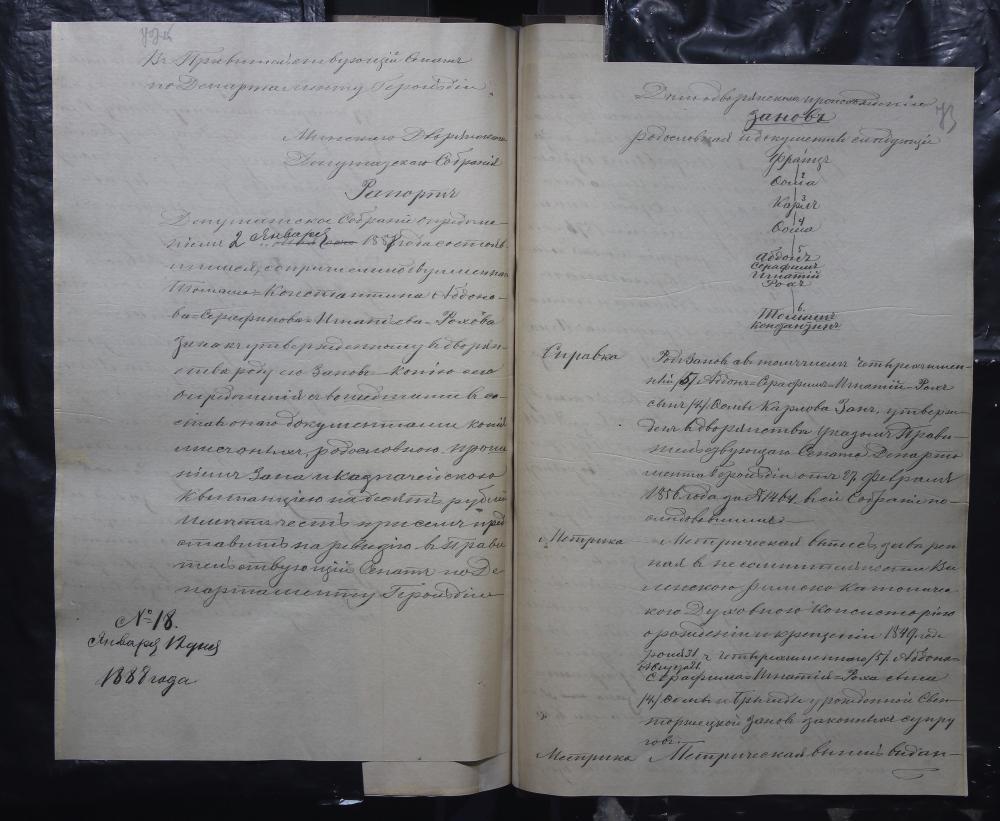 Въ Правительствующій Сенатъ
по Департаменту Герольдіи
Минскаго Дворянскаго
Депутатскаго Собранія
Рапортъ
Депутатское Собраніе опредѣле-
ніемъ 2 Января 188 года состояв
шимся, сопричисливъ
Томаша-Константина Абдоно-
ва-Серафинова-Игнатьева-Рохова
Зана къ утвержденному въ дворян-
ствѣ роду его Зановъ копію сего
опредѣленія съ вошедшими въ со-
ставъ онаго документами копій
оныхъ, родословною, проше
ніемъ Зана и казначейскою
Квитанціею на десять рублей
имѣетъ честь при семъ пред
ставить на ревизію въ Прави
тельствующій Сенатъ по Де
партаменту Герольдіи
№ 18.
Января 12 дня
1888 года
73
Дѣло о дворянскомъ происхожденіи
Зановъ
родословная и документы слѣдующіе
Францъ
2
Ѳома
3
Карлъ
4
Ѳома
5
Абдонъ
Серафимъ
Игнатій
Рохъ
6.
Томашъ
Константинъ
Справка
Родъ Зановъ а въ томъ числѣ четырехимен-
ный /5/ Абдонъ-Серафимъ-Игнатій-Рохъ
сынъ /4/ Ѳомы Карлова Занъ, утверж-
денъ въ дворянствѣ Указомъ Прави-
тельствующаго Сената Департа
мента Герольдіи отъ 27 февраля
1856 года за № 1464 въ сей Собраніе по-
слѣдовавшимъ
Метрика
Метрическая выпись, завѣрен
ная въ несомнительности Ви
ленскою Римско Католичес
кою Духовною Консисторіею
о рожденіи и крещеніи 1849 года
31
Августа 21
ч четырехименнаго /5/ Абдона-
Серафима-Игнатія-Роха сына
/4/ Ѳомы и Бригиды урожденной Свен
торжецкой Зановъ законныхъ супру
говъ
Метрика
Метрическая выпись выдан-